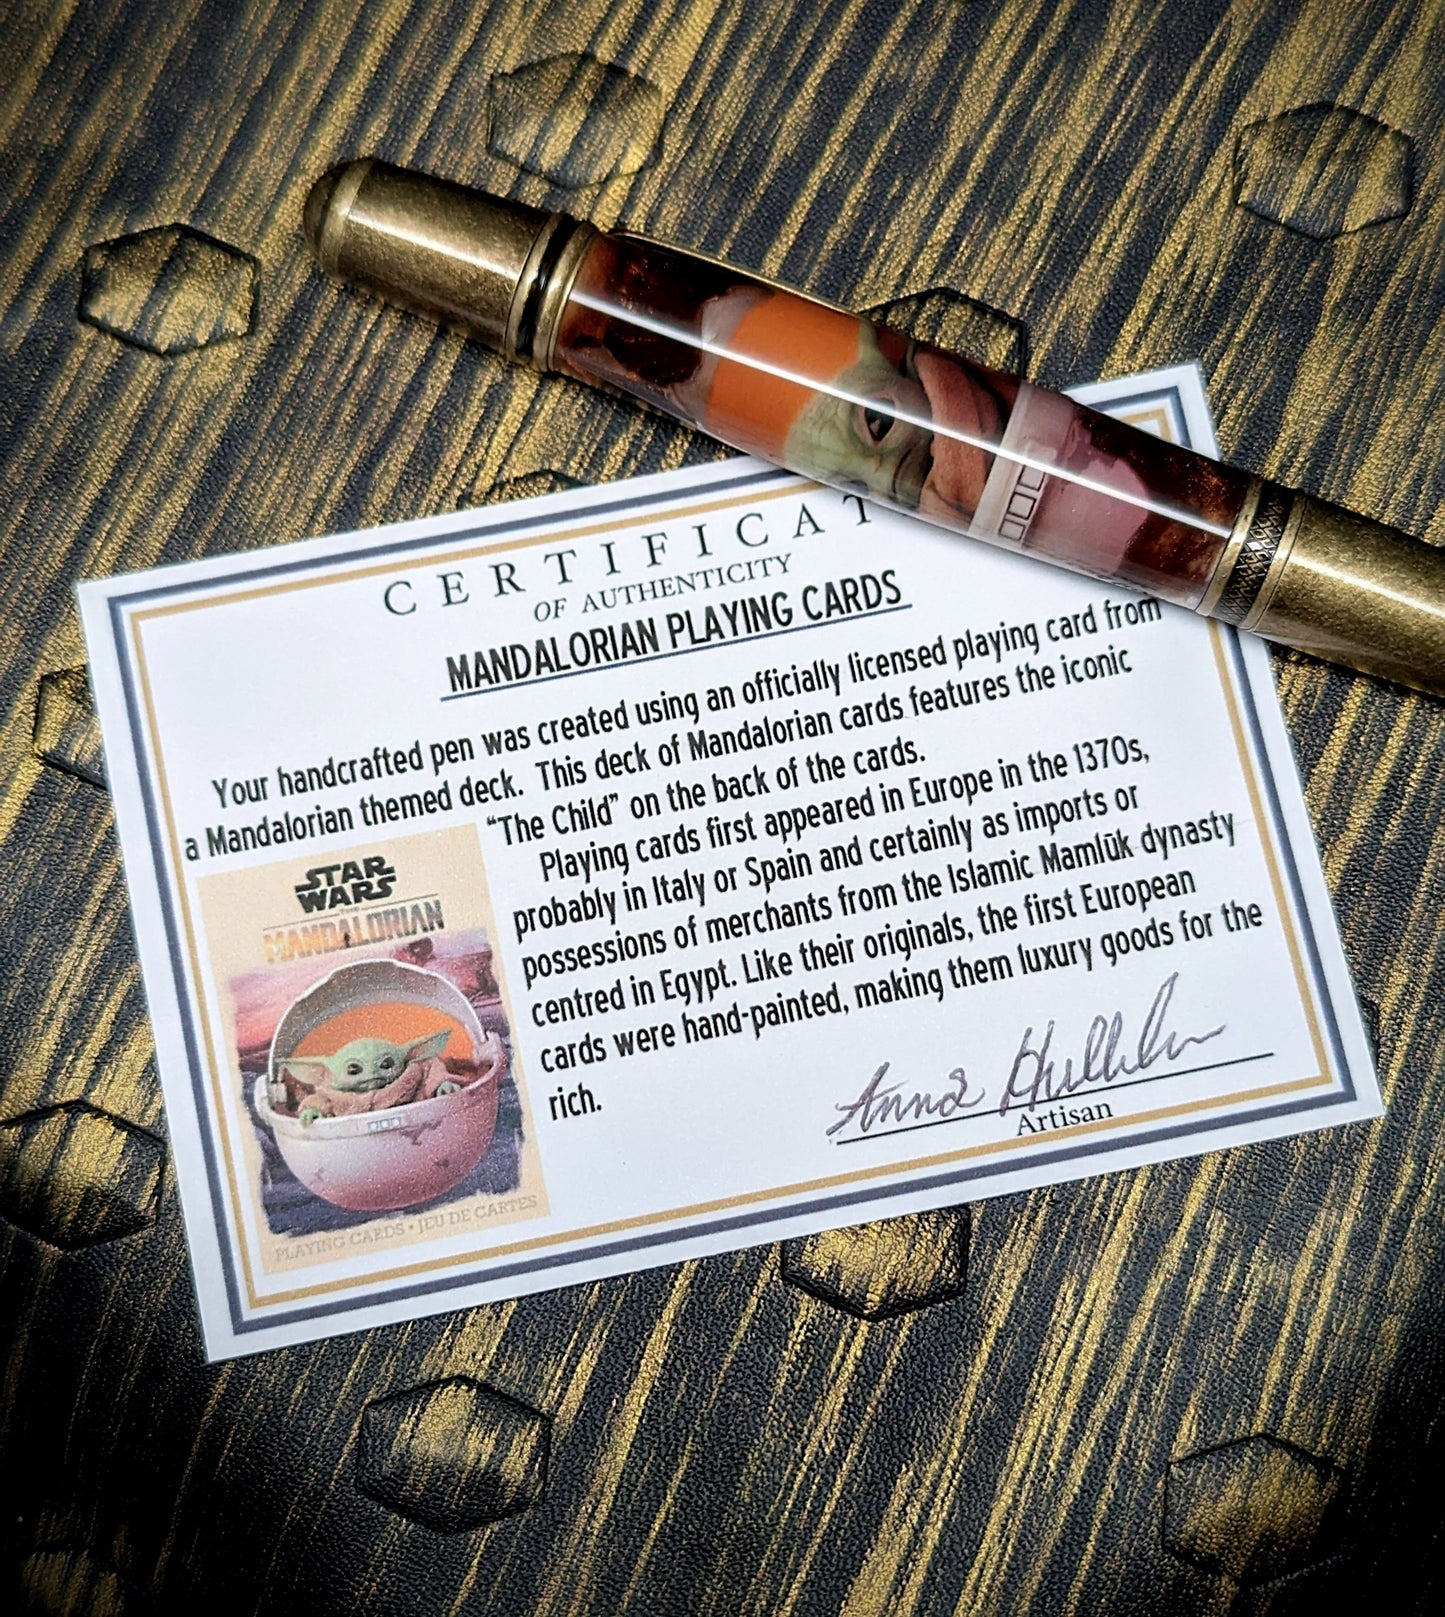 CERTIFICAT
OF AUTHENTICITY
MANDALORIAN PLAYING CARDS
Your handcrafted pen was created using an officially licensed playing card from
a Mandalorian themed deck. This deck of Mandalorian cards features the iconic
"The Child" on the back of the cards.
Playing cards first appeared in Europe in the 1370s,
probably in Italy or Spain and certainly as imports or
possessions of merchants from the Islamic Mamlūk dynasty
centred in Egypt. Like their originals, the first European
cards were hand-painted, making them luxury goods for the
rich.
STAR
WARS
MANDALORIAN
PLAYING CARDS • JEU DE CARTES
Anna
Artisan